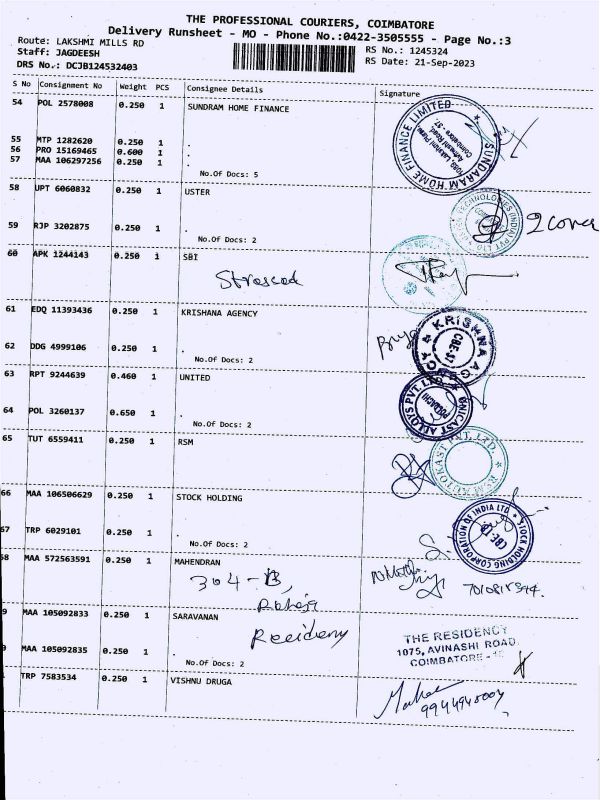 THE PROFESSIONAL COURIERS, COIMBATORE
Delivery Runsheet - MO - Phone No.:0422-3505555 - Page No.:3
Route: LAKSHMI MILLS RD
RS No.: 1245324
Staff: JAGDEESH
RS Date: 21-Sep-2023
DRS No.: DCJB124532403
S No Consignment No Weight PCS Consignee Details Signature
54 POL 2578008 0.250 1 SUNDRAM HOME FINANCE
55 MTP 1282620 0.250 1 .
56 PRO 15169465 0.600 1 .
57 MAA 106297256 0.250 1 .
No.Of Docs: 5
SUNDARAM HOME FINANCE LIMITED
58 UPT 6060832 0.250 1 USTER
59 RJP 3202875 0.250 1 .
No.Of Docs: 2
2 cover
60 APK 1244143 0.250 1 SBI
61 EDQ 11393436 0.250 1 KRISHANA AGENCY
62 DDG 4999106 0.250 1 .
No.Of Docs: 2
KRISHNA AGENCY
CBE-17
63 RPT 9244639 0.460 1 UNITED
64 POL 3260137 0.650 1 .
No.Of Docs: 2
UNICAST ALLOYS PVT. LTD.
POLLACHI
65 TUT 6559411 0.250 1 RSM
RSM AUTOKAST PVT. LTD.
66 MAA 106506629 0.250 1 STOCK HOLDING
67 TRP 6029101 0.250 1 .
No.Of Docs: 2
STOCK HOLDING CORPORATION OF INDIA LTD.
CBE
68 MAA 572563591 0.250 1 MAHENDRAN
304-B,
Raheja
9 MAA 105092833 0.250 1 SARAVANAN
Residency
MAA 105092835 0.250 1 .
No.Of Docs: 2
THE RESIDENCY
1075, AVINASHI ROAD,
COIMBATORE -
TRP 7583534 0.250 1 VISHNU DRUGA